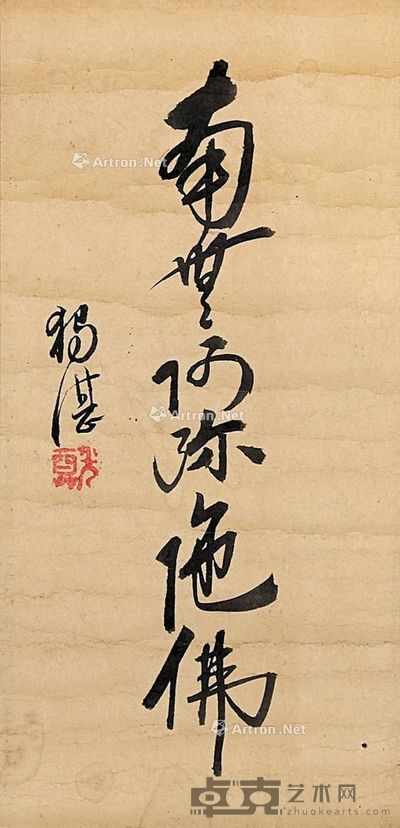 南無阿弥陀佛
獨湛
Artron.Net
Artron.Net
Artron.Net
卓克艺术网
zhuokearts.com